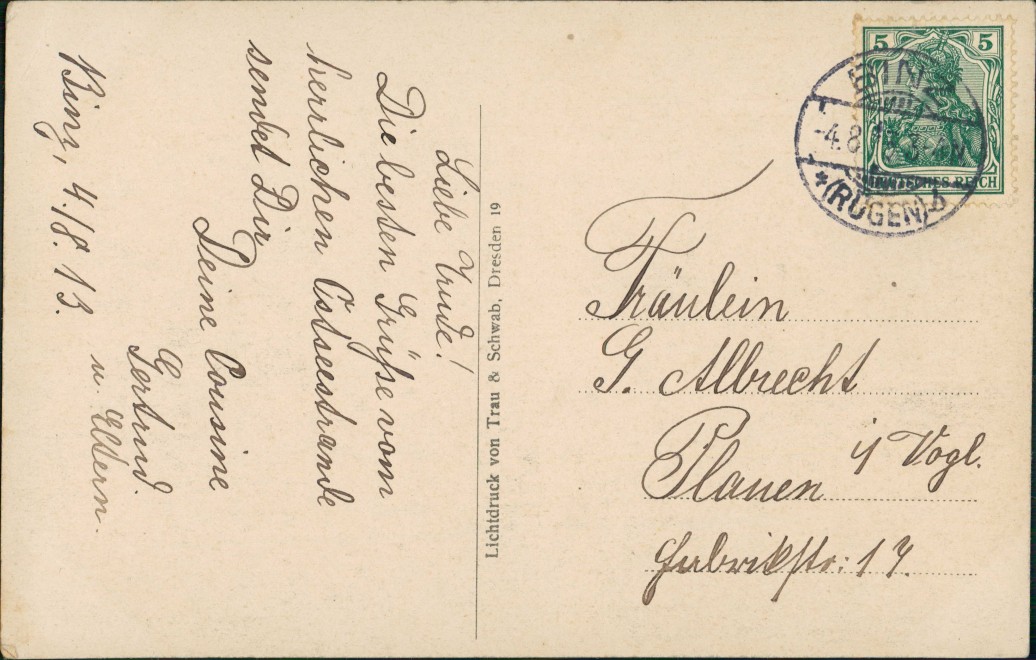 Liebe Trude!
Die besten Grüße vom
herrlichen Ostseestrande
sendet Dir
Deine Cousine
Gertrud.
u. Eltern.
Binz, 4./8. 13.
Lichtdruck von Trau & Schwab, Dresden 19
5 5
DEUTSCHES REICH
BINZ
-4.8.13.
*(RÜGEN)
Fräulein
G. Albrecht
Plauen i/ Vogl.
Fabrikstr: 17.